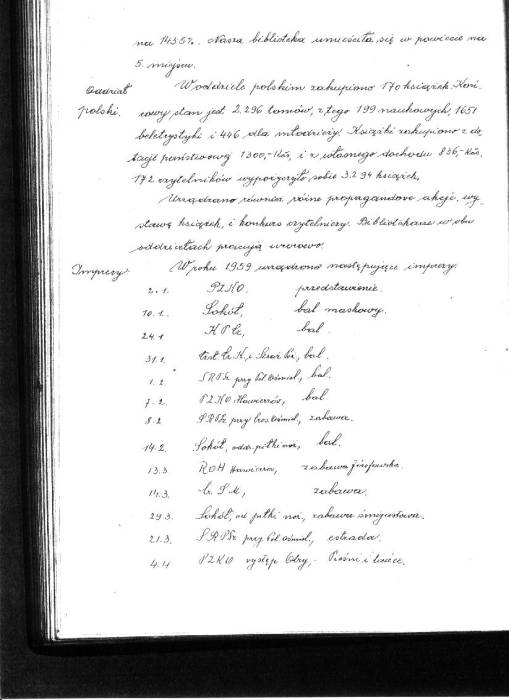 na 1435%. Nasza biblioteka umieściła się w powiecie na
5. miejscu.
Oddział polski.
W oddziele polskim zakupiono 170 książek. Koń-
cowy stan jest 2.296 tomów, z tego 199 naukowych, 1651
beletrystyki i 446 dla młodzieży. Książki zakupiono z do
tacji państwową 1300,- Kčs, i z własnego dochodu 836,- Kčs.
172 czytelników wypożyczyło sobie 3.294 książek.
Urządzano również różne propagandowe akcje, wy-
stawę książek, i konkurs czytelniczy. Bibliotekarze w obu
oddziałach pracują wzorowo.
Imprezy:
W roku 1959 urządzono następujące imprezy:
2.1. PZKO. przedstawienie.
10.1. Sokół, bal maskowy.
24.1 KPČz, bal.
31.1. Čz.K. i bal.
1.2. SRPSz przy bal.
7.2. PZKO Hawierzów, bal
8.2 SRPSz przy zabawa.
14.2. Sokół, oddz. piłki noż, bal.
13.3 ROH Hawierzów, zabawa józefowska.
14.3. Čz. S M, zabawa.
29.3. Sokół, od piłki noż, zabawa śmigustowa.
21.3. SRPSz przy estrada.
4.4 PZKO występ Olzy,- Pieśni i tańce.